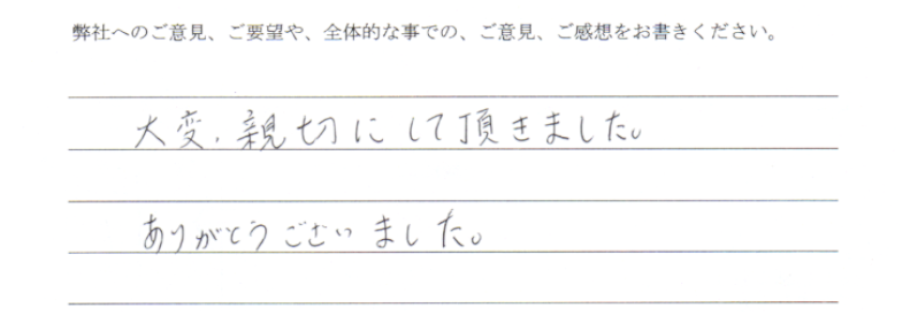 弊社へのご意見、ご要望や、全体的な事での、ご意見、ご感想をお書きください。
大変、親切にして頂きました。
ありがとうございました。